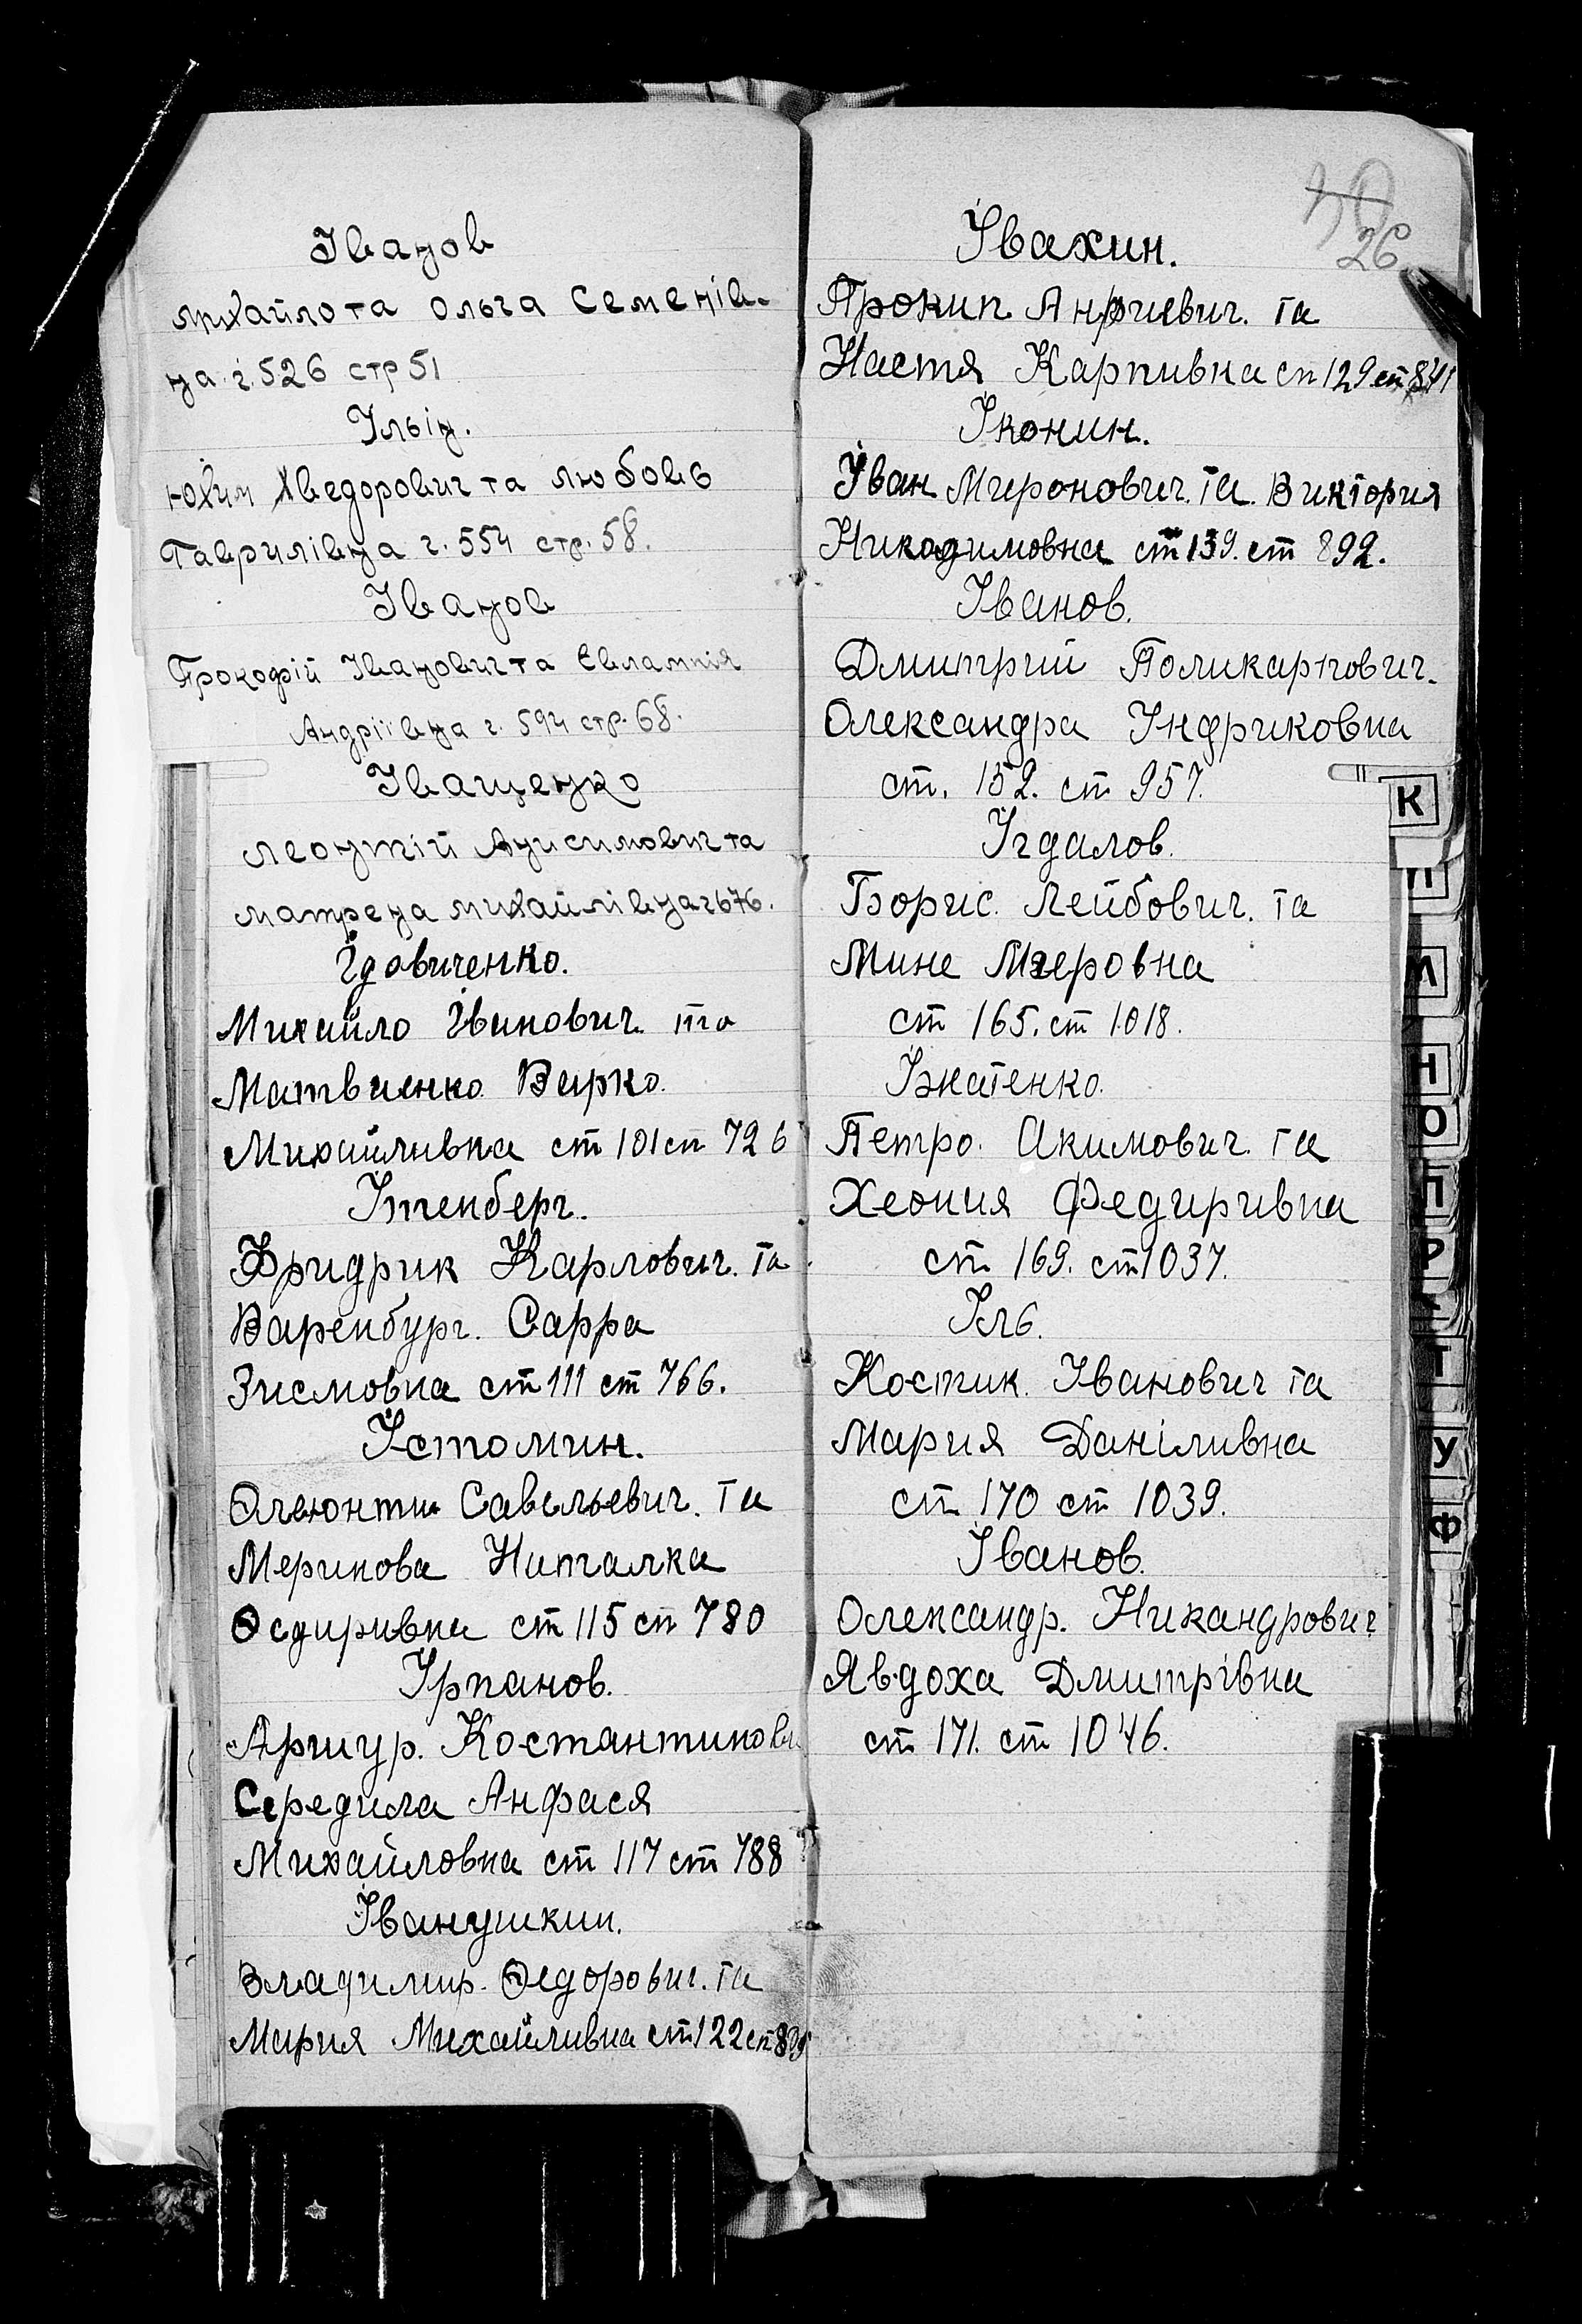 Іванов
михайло та Ольга Семенів-
на г. 526 стр 51
Ільін.
юхим Хведорович та любовь
Гаврилівна г. 554 стр. 58.
Іванов
Прокофій Іванович та Євлампія
Андріівна г. 594 стр. 68.
Іващенко
леонтій Анисимович та
матрена михайлівна г 676.
Їдовиченко.
Михайло Іванович та
Матвиенко Вирко.
Михайливна ст 101 ст 726
Ітенберг.
Фридрик Карлович. та
Варенбург. Сарра
Зисмовна ст 111 ст 766.
Істомин.
Савельевич. та
МериковаНиталка
Ѳедиривна ст 115 ст 780
Ірпанов.
Артур. Костантинови
Середила Анфася
Михайловна ст 117 ст 788
Іванушкин.
Владимир. Ѳедорович. та
Мария Михайливна ст 122 ст
40
26
Івахин.
Прокип Андриевич. та
Настя Карпивна ст 129 ст 841
Іконин.
Іван Миронович. та. Виктория
Никодимовна ст 139. ст 892.
Іванов.
Дмитрий Поликарпович.
Олександра Індриковна
ст. 152. ст 957.
Ігдалов.
Борис. Лейбович. та
Мине Меровна
ст 165. ст 1018.
Ікнатенко.
Петро. Акимович. та
Хеония Федиривна
ст 169. ст 1037.
Іль.
Костик. Іванович та
Мария Даніливна
ст 170 ст 1039.
Іванов.
Олександр. Никандрович
Явдоха Дмитрівна
ст 171. ст 1046.
К
Л
М
Н
О
П
Р
Т
У
Ф